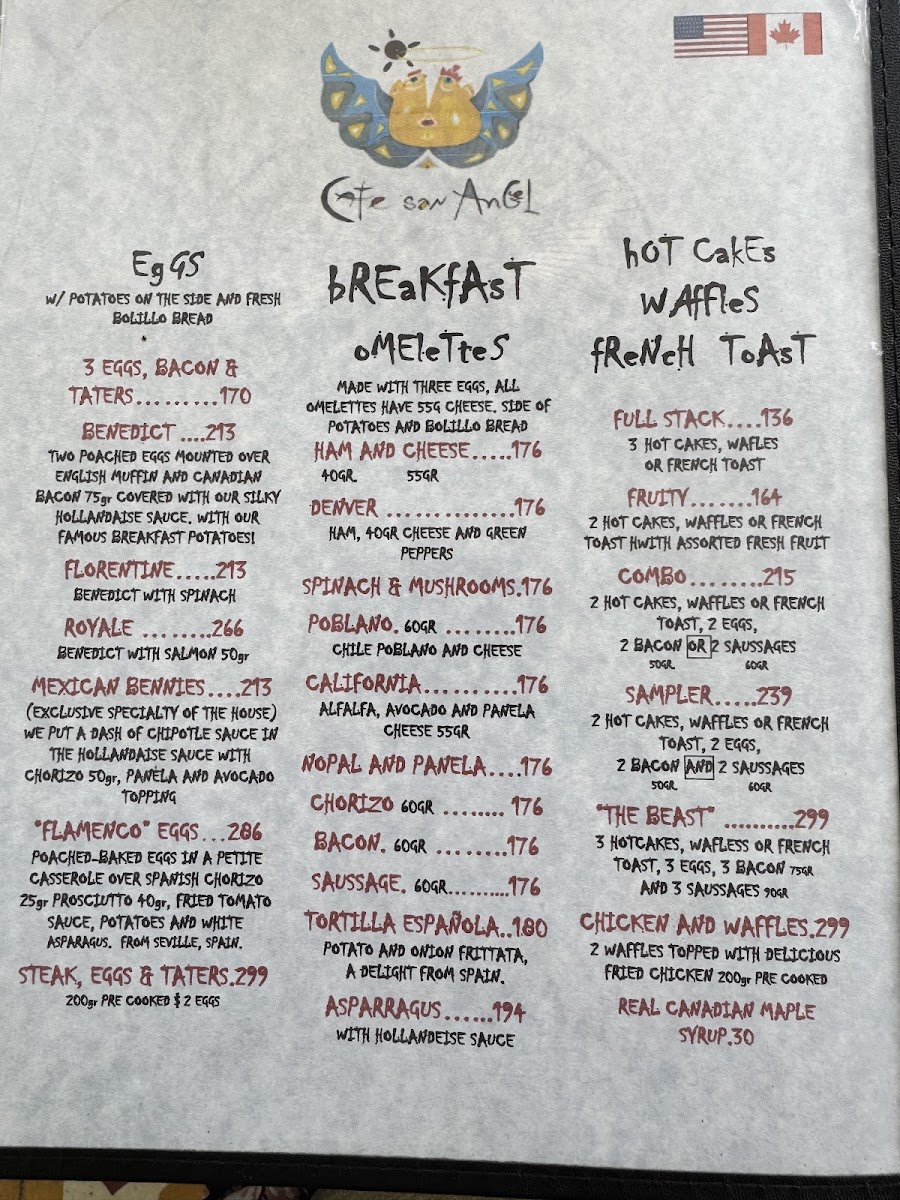 Cafe san AnGEL
EgGS
W/ POTATOES ON THE SIDE AND FRESH
BOLILLO BREAD
3 EGGS, BACON &
TATERS.........170
BENEDICT ....213
TWO POACHED EGGS MOUNTED OVER
ENGLISH MUFFIN AND CANADIAN
BACON 75gr COVERED WITH OUR SILKY
HOLLANDAISE SAUCE. WITH OUR
FAMOUS BREAKFAST POTATOES!
FLORENTINE.....213
BENEDICT WITH SPINACH
ROYALE ........266
BENEDICT WITH SALMON 50gr
MEXICAN BENNIES....213
(EXCLUSIVE SPECIALTY OF THE HOUSE)
WE PUT A DASH OF CHIPOTLE SAUCE IN
THE HOLLANDAISE SAUCE WITH
CHORIZO 50gr, PANELA AND AVOCADO
TOPPING
"FLAMENCO" EGGS...286
POACHED-BAKED EGGS IN A PETITE
CASSEROLE OVER SPANISH CHORIZO
25gr PROSCIUTTO 40gr, FRIED TOMATO
SAUCE, POTATOES AND WHITE
ASPARAGUS. FROM SEVILLE, SPAIN.
STEAK, EGGS & TATERS.299
200gr PRE COOKED & 2 EGGS
bREaKfAsT
oMEleTteS
MADE WITH THREE EGGS, ALL
OMELETTES HAVE 55G CHEESE. SIDE OF
POTATOES AND BOLILLO BREAD
HAM AND CHEESE.....176
40GR 55GR
DENVER ..............176
HAM, 40GR CHEESE AND GREEN
PEPPERS
SPINACH & MUSHROOMS.176
POBLANO. 60GR ........176
CHILE POBLANO AND CHEESE
CALIFORNIA..........176
ALFALFA, AVOCADO AND PANELA
CHEESE 55GR
NOPAL AND PANELA....176
CHORIZO 60GR ........ 176
BACON. 60GR ........176
SAUSSAGE. 60GR.........176
TORTILLA ESPAÑOLA..180
POTATO AND ONION FRITTATA,
A DELIGHT FROM SPAIN.
ASPARRAGUS......194
WITH HOLLANDEISE SAUCE
hOT CakEs
WAffleS
fReNcH ToAsT
FULL STACK....136
3 HOT CAKES, WAFLES
OR FRENCH TOAST
FRUITY.......164
2 HOT CAKES, WAFFLES OR FRENCH
TOAST HWITH ASSORTED FRESH FRUIT
COMBO........215
2 HOT CAKES, WAFFLES OR FRENCH
TOAST, 2 EGGS,
2 BACON OR 2 SAUSSAGES
50GR 60GR
SAMPLER.....239
2 HOT CAKES, WAFFLES OR FRENCH
TOAST, 2 EGGS,
2 BACON AND 2 SAUSSAGES
50GR 60GR
"THE BEAST" ..........299
3 HOTCAKES, WAFLESS OR FRENCH
TOAST, 3 EGGS, 3 BACON 75GR
AND 3 SAUSSAGES 90GR
CHICKEN AND WAFFLES.299
2 WAFFLES TOPPED WITH DELICIOUS
FRIED CHICKEN 200gr PRE COOKED
REAL CANADIAN MAPLE
SYRUP.30